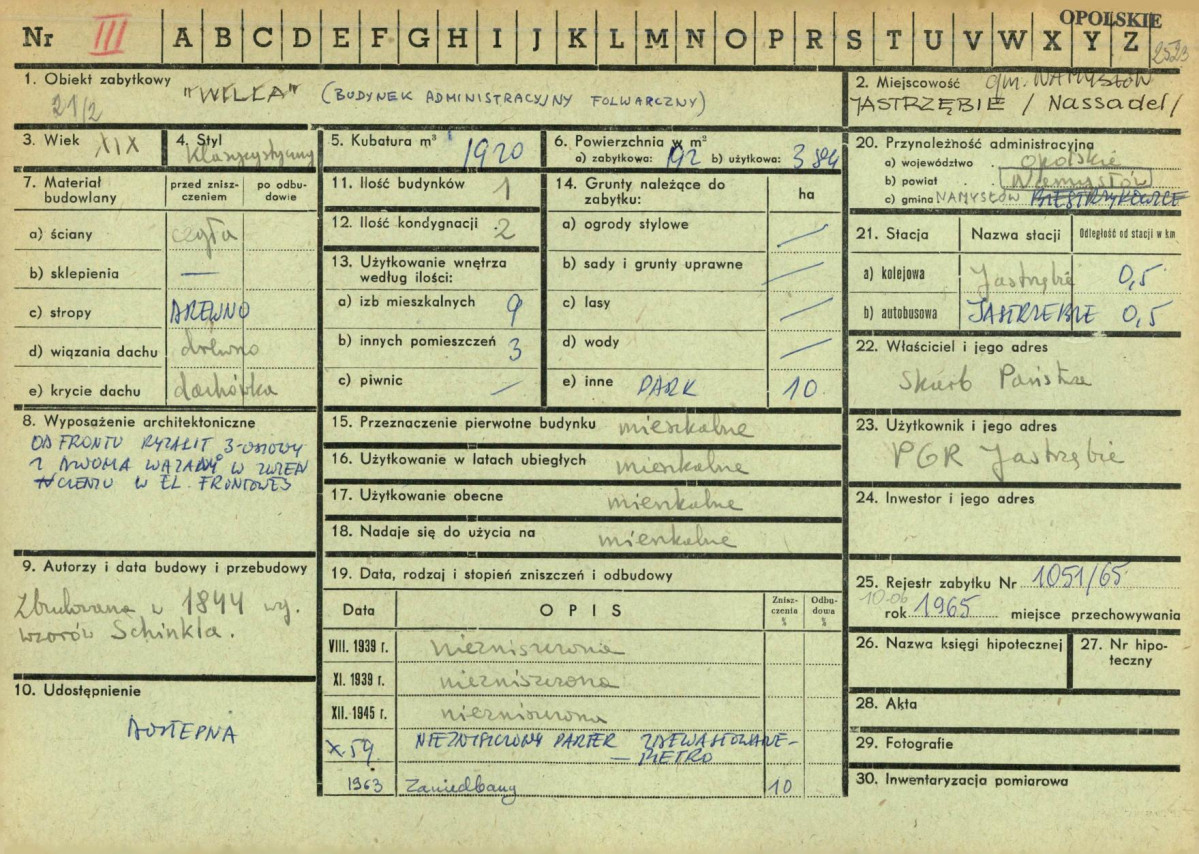 OPOLSKIE
Nr III A B C D E F G H I J K L M N O P R S T U V W X Y Z
2523
1. Obiekt zabytkowy "WILLA" (BUDYNEK ADMINISTRACYJNY FOLWARCZNY)
21/2
2. Miejscowość gm. NAMYSŁÓW
JASTRZĘBIE / Nassadel /
3. Wiek XIX
4. Styl
Klasycystyczny
5. Kubatura m³ 1920
6. Powierzchnia w m²
a) zabytkowa: 192 b) użytkowa: 384
7. Materiał budowlany
przed zniszczeniem
po odbudowie
a) ściany cegła
b) sklepienia —
c) stropy DREWNO
d) wiązania dachu drewno
e) krycie dachu dachówka
8. Wyposażenie architektoniczne
OD FRONTU RYZALIT 3-OSIOWY
Z DWOMA WAZAMI W ZWIEŃ
CZENIU W EL. FRONTOWEJ
9. Autorzy i data budowy i przebudowy
Zbudowana w 1844 wg.
wzorów Schinkla.
10. Udostępnienie
DOSTĘPNA
11. Ilość budynków 1
12. Ilość kondygnacji 2
13. Użytkowanie wnętrza
według ilości:
a) izb mieszkalnych 9
b) innych pomieszczeń 3
c) piwnic —
14. Grunty należące do
zabytku:
ha
a) ogrody stylowe —
b) sady i grunty uprawne —
c) lasy —
d) wody —
e) inne PARK 10
15. Przeznaczenie pierwotne budynku mieszkalne
16. Użytkowanie w latach ubiegłych mieszkalne
17. Użytkowanie obecne mieszkalne
18. Nadaje się do użycia na mieszkalne
19. Data, rodzaj i stopień zniszczeń i odbudowy
Data OPIS Zniszczenia % Odbudowa %
VIII. 1939 r. niezniszczona
XI. 1939 r. niezniszczona
XII. 1945 r. niezniszczona
X.59. NIEZNISZCZONY PARTER ZDEWASTOWANE-
— PIĘTRO
1963 Zaniedbany 10
20. Przynależność administracyjna
a) województwo opolskie
b) powiat Namysłów
c) gmina NAMYSŁÓW BIESTRZYKOWICE
21. Stacja Nazwa stacji Odległość od stacji w km
a) kolejowa Jastrzębie 0,5
b) autobusowa JASTRZĘBIE 0,5
22. Właściciel i jego adres
Skarb Państwa
23. Użytkownik i jego adres
PGR Jastrzębie
24. Inwestor i jego adres
25. Rejestr zabytku Nr 1051/65
10-06
rok 1965 miejsce przechowywania
26. Nazwa księgi hipotecznej
27. Nr hipoteczny
28. Akta
29. Fotografie
30. Inwentaryzacja pomiarowa